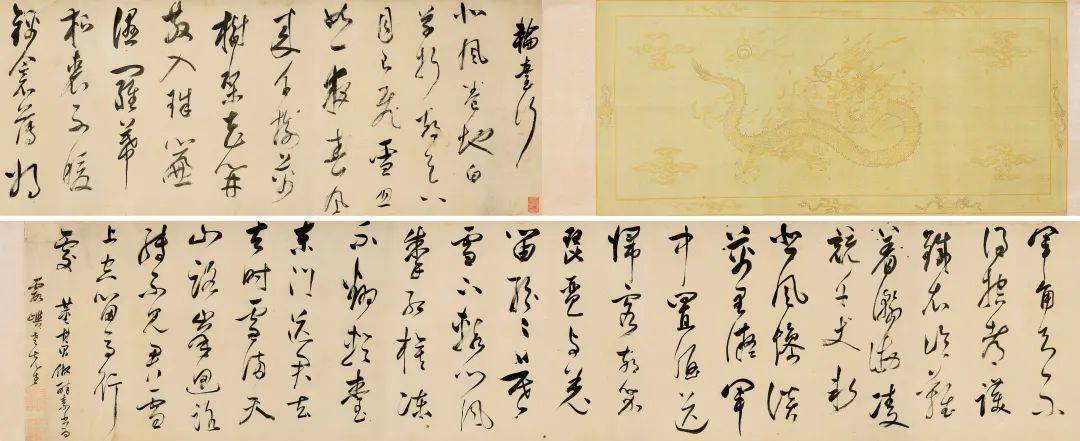 輪臺行
北風卷地白
草折胡天八
月已飛雪忽
如一夜春風
来千樹萬
樹梨花開
散入珠簾
濕羅幕
狐裘不暖
錦衾薄將
軍角弓不
得控都護
鐵衣冷難
著瀚海凌
千丈
慘淡
萬里凝軍
中置酒送
歸客胡琴
琵琶与羌
笛紛紛暮
雪下轅門風
掣紅旗凍
不翻輪臺
東門送君去
去時雪滿天
山路峯迴路
轉不見君雪
上空留馬行
處 董其昌倣醉素書為
霞嶼老先生